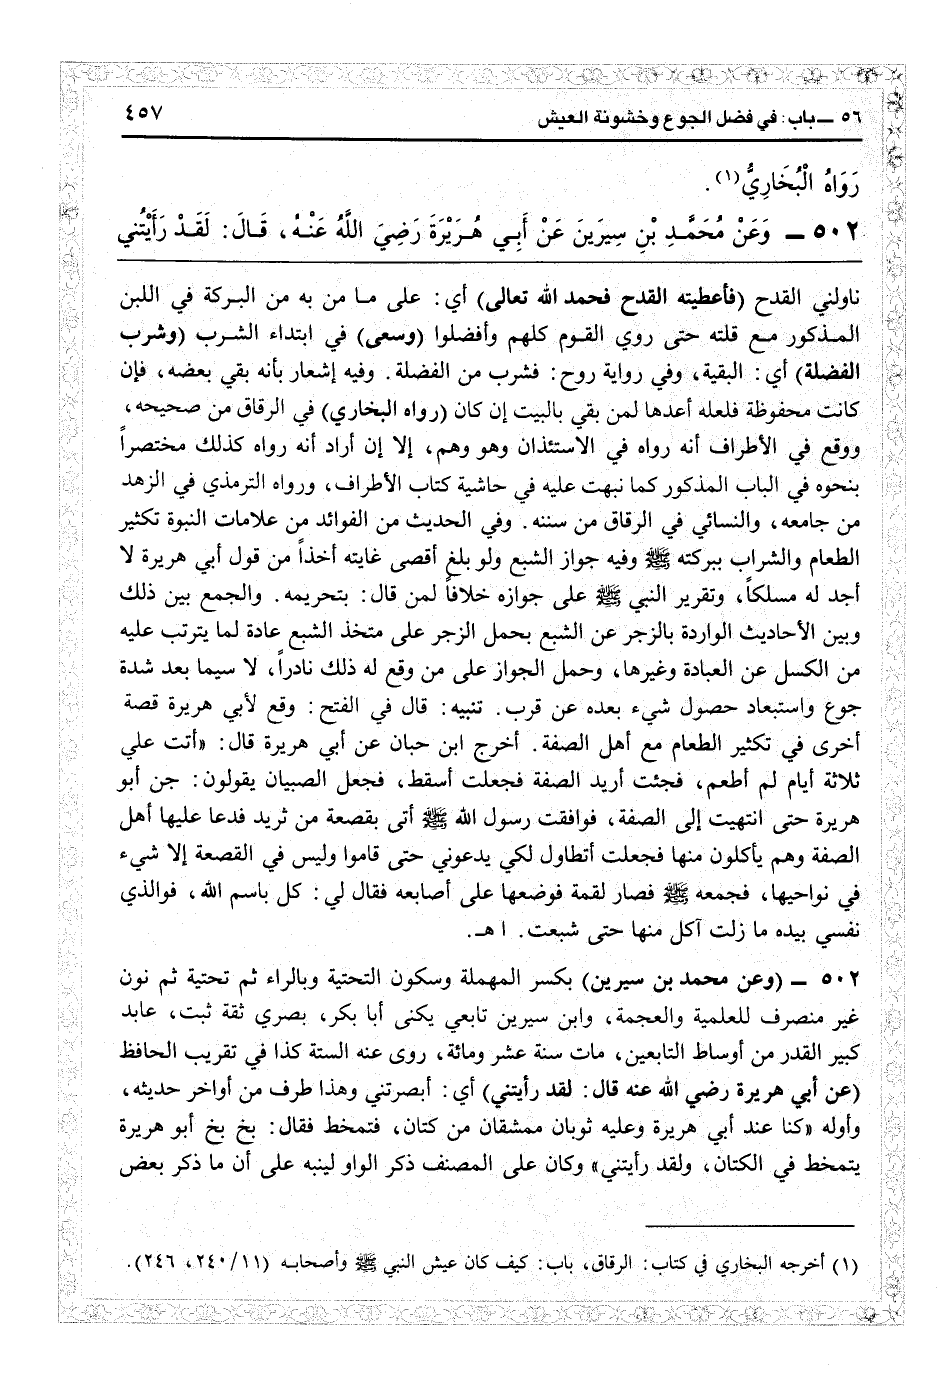 ٥٦ ــ باب: في فضل الجوع وخشونة العيش
٤٥٧
رَوَاهُ الْبُخَارِيُّ(١).
٥٠٢ ــ وَعَنْ مُحَمَّدِ بْنِ سِيرِينَ عَنْ أَبِي هُرَيْرَةَ رَضِيَ اللَّهُ عَنْهُ، قَالَ: لَقَدْ رَأَيْتُني
ناولني القدح (فأعطيته القدح فحمد الله تعالى) أي: على ما من به من البركة في اللبن
المذكور مع قلته حتى روي القوم كلهم وأفضلوا (وسعى) في ابتداء الشرب (وشرب
الفضلة) أي: البقية، وفي رواية روح: فشرب من الفضلة. وفيه إشعار بأنه بقي بعضه، فإن
كانت محفوظة فلعله أعدها لمن بقي بالبيت إن كان (رواه البخاري) في الرقاق من صحيحه،
ووقع في الأطراف أنه رواه في الاستئذان وهو وهم، إلا إن أراد أنه رواه كذلك مختصراً
بنحوه في الباب المذكور كما نبهت عليه في حاشية كتاب الأطراف، ورواه الترمذي في الزهد
من جامعه، والنسائي في الرقاق من سننه. وفي الحديث من الفوائد من علامات النبوة تكثير
الطعام والشراب ببركته ﷺ وفيه جواز الشبع ولو بلغ أقصى غايته أخذاً من قول أبي هريرة لا
أجد له مسلكاً، وتقرير النبي ﷺ على جوازه خلافاً لمن قال: بتحريمه. والجمع بين ذلك
وبين الأحاديث الواردة بالزجر عن الشبع بحمل الزجر على متخذ الشبع عادة لما يترتب عليه
من الكسل عن العبادة وغيرها، وحمل الجواز على من وقع له ذلك نادراً، لا سيما بعد شدة
جوع واستبعاد حصول شيء بعده عن قرب. تنبيه: قال في الفتح: وقع لأبي هريرة قصة
أخرى في تكثير الطعام مع أهل الصفة. أخرج ابن حبان عن أبي هريرة قال: «أتت علي
ثلاثة أيام لم أطعم، فجئت أريد الصفة فجعلت أسقط، فجعل الصبيان يقولون: جن أبو
هريرة حتى انتهيت إلى الصفة، فوافقت رسول الله ﷺ أتى بقصعة من ثريد فدعا عليها أهل
الصفة وهم يأكلون منها فجعلت أتطاول لكي يدعوني حتى قاموا وليس في القصعة إلا شيء
في نواحيها، فجمعه ﷺ فصار لقمة فوضعها على أصابعه فقال لي: كل باسم الله، فوالذي
نفسي بيده ما زلت آكل منها حتى شبعت. اهـ.
٥٠٢ ــ (وعن محمد بن سيرين) بكسر المهملة وسكون التحتية وبالراء ثم تحتية ثم نون
غير منصرف للعلمية والعجمة، وابن سيرين تابعي يكنى أبا بكر، بصري ثقة ثبت، عابد
كبير القدر من أوساط التابعين، مات سنة عشر ومائة، روى عنه الستة كذا في تقريب الحافظ
(عن أبي هريرة رضي الله عنه قال: لقد رأيتني) أي: أبصرتني وهذا طرف من أواخر حديثه،
وأوله «كنا عند أبي هريرة وعليه ثوبان ممشقان من كتان، فتمخط فقال: بخ بخ أبو هريرة
يتمخط في الكتان، ولقد رأيتني» وكان على المصنف ذكر الواو لينبه على أن ما ذكر بعض
(١) أخرجه البخاري في كتاب: الرقاق، باب: كيف كان عيش النبي ﷺ وأصحابه (٢٤٠/١١، ٢٤٦).